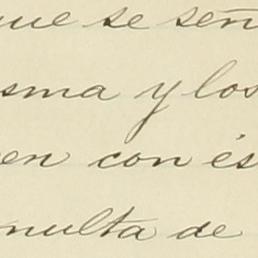 que se señ
sma y los
en con és
nulta de